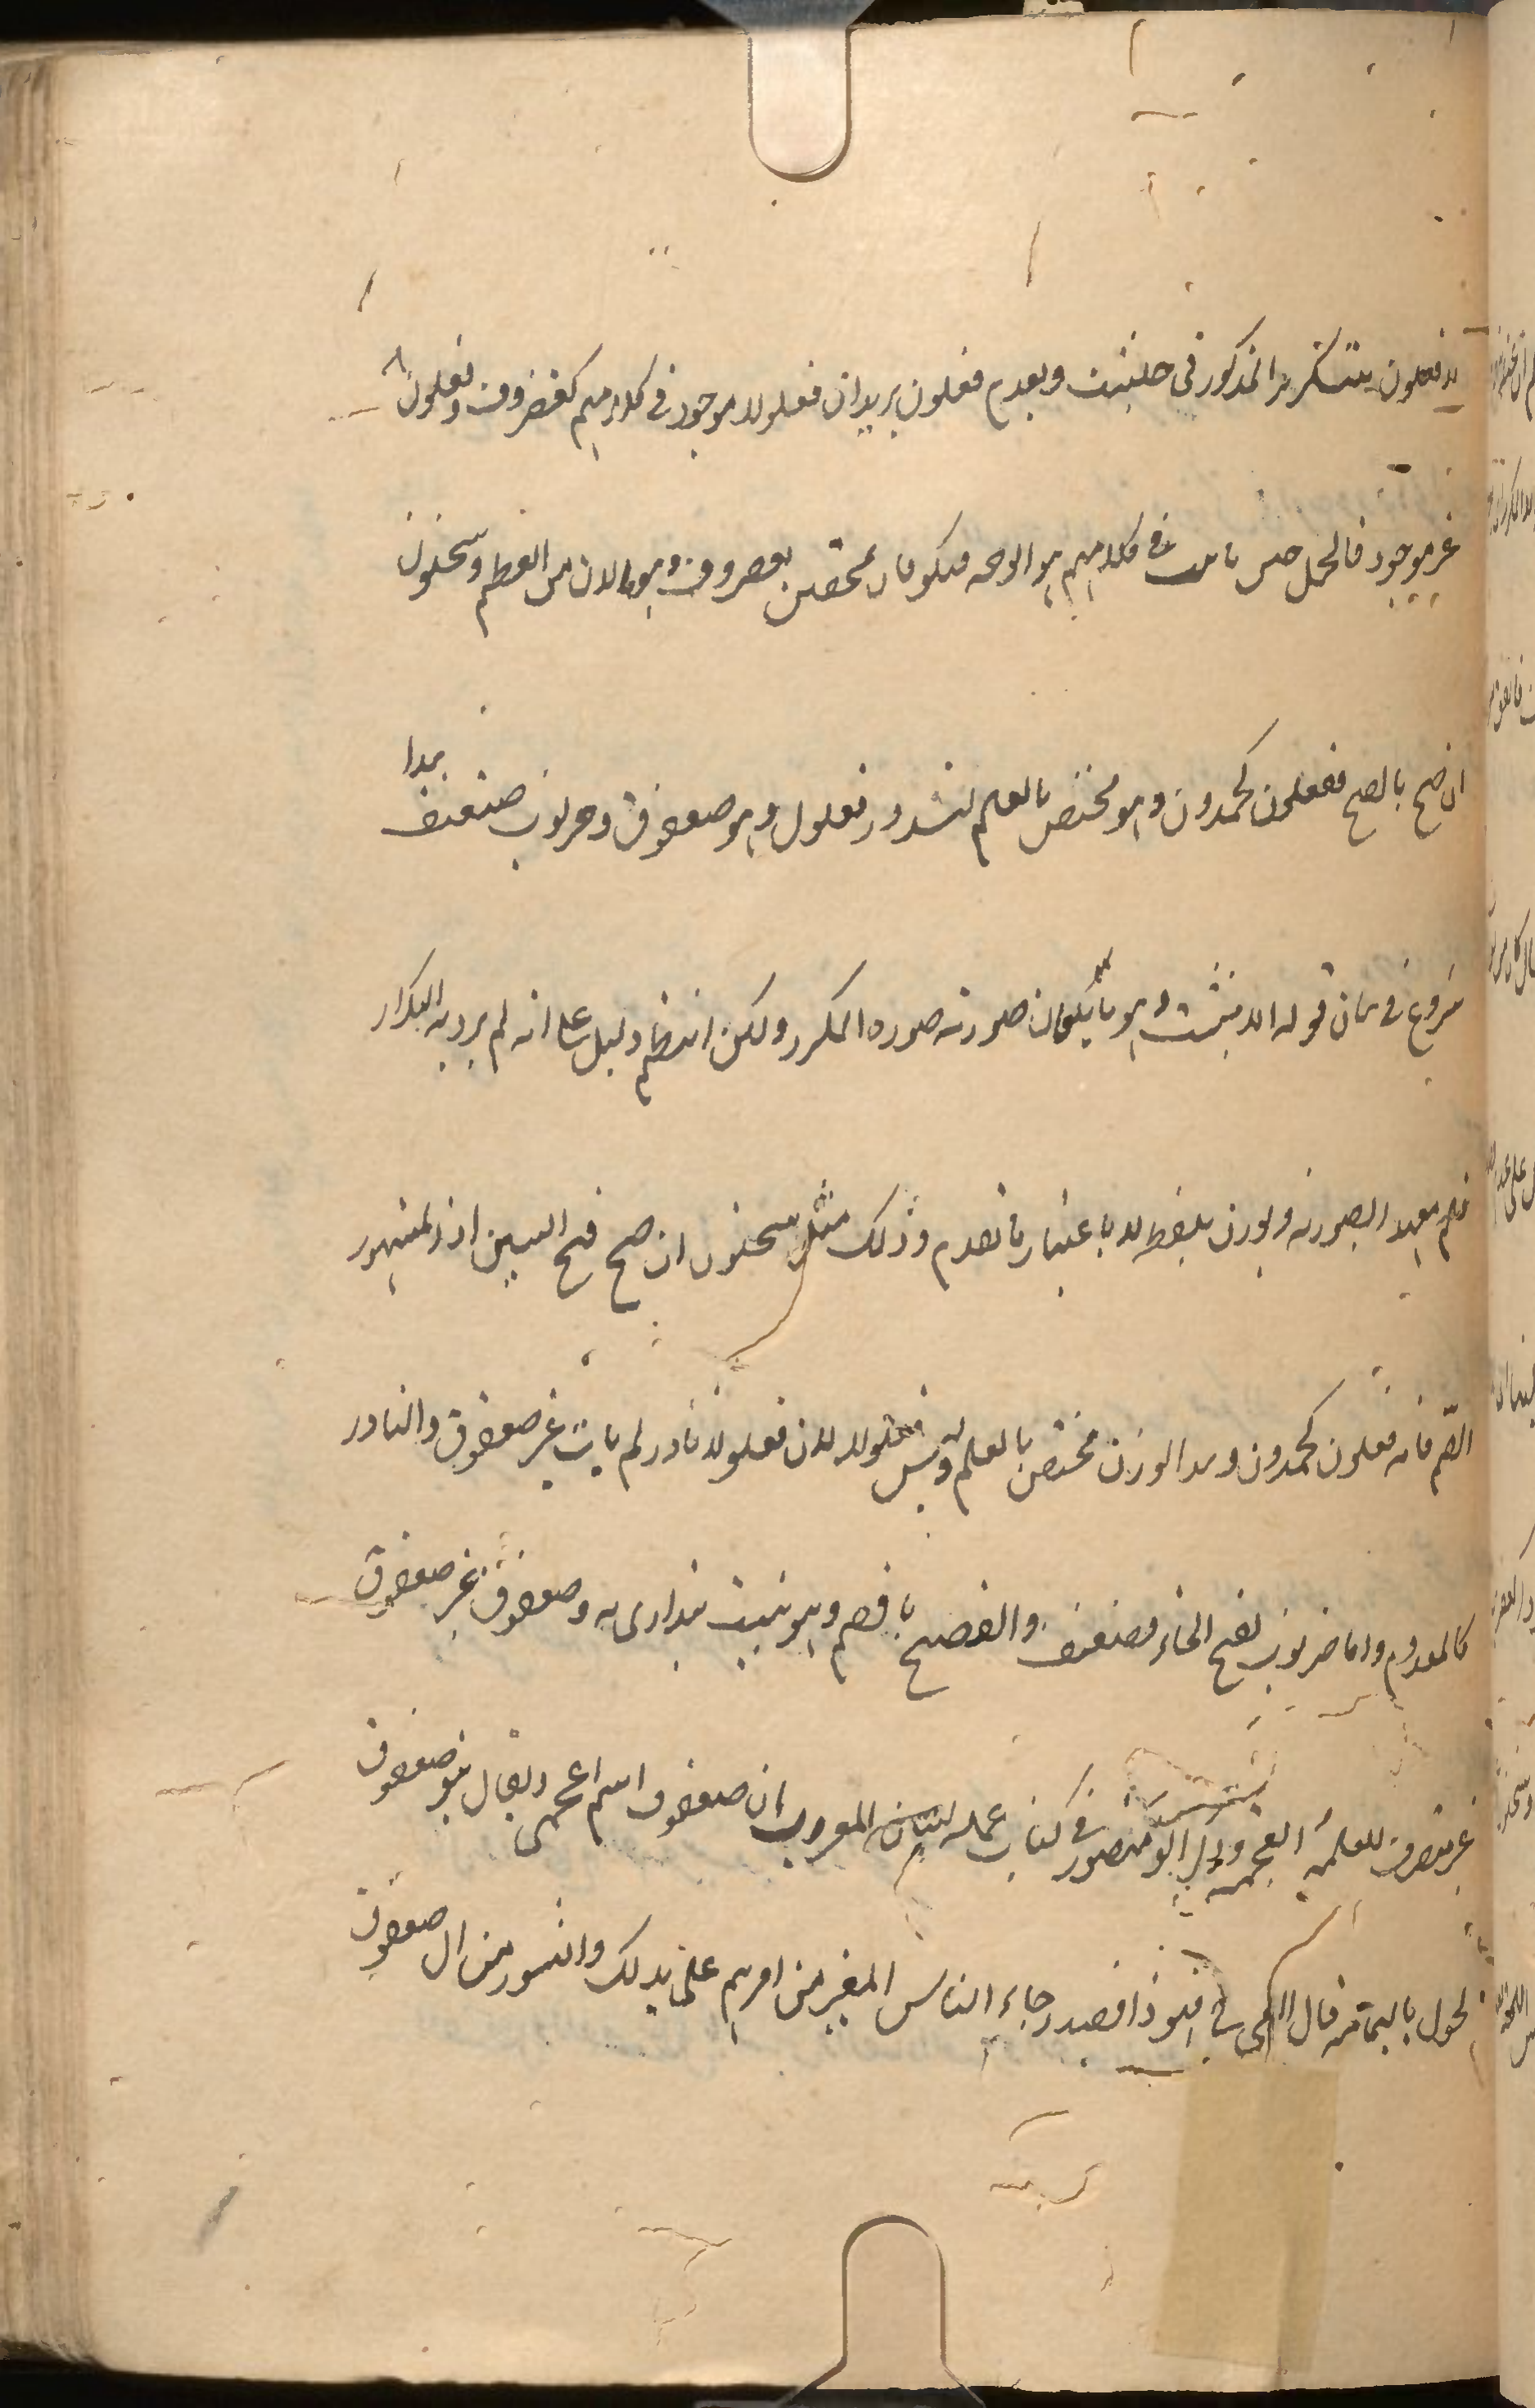 لا فعلون يتكرر المذكور في حلتيت وبعدم فعلون يريد ان فعلولا موجود في كلامهم كغضروف وفعلون
غير موجود فالحمل على ما ثبت في كلامهم هو الوجه بغضروف وهو ما لان من العظم وسحنون
ان صح بالفتح ففعلون كحمدون وهو مختص بالعلم لندور فعلول وهو صعفوق وخرنوب ضعيف هذا
شروع في بيان قوله الا بثبت وهو ما يكون صورته صورة المكرر ولكن دليل على انه لم يرد به التكرار
فلم الصورة ويوزن بلفظه لا باعتبار ما تقدم وذلك مثل سحنون ان صح فتح السين اذ المشهور
الضم فانه فعلون كحمدون وهذا الوزن مختص بالعلم وليس فعلولا لان فعلولا نادر لم يات غير صعفوق والنادر
كالمعدوم واما خرنوب بفتح الخاء فضعيف والفصيح بالضم وهو نبت يتداوى به وصعفوق غير
غير منصرف للعلمية العجمة وقال ابو منصور في كتاب عمله المعرب ان صعفوق اسم اعجمي ويقال بنو صعفوق
لخول باليمامة قال في فهو ذا فقد رجاء الناس الغير من امرهم على يديك والثؤر من آل صعفوق